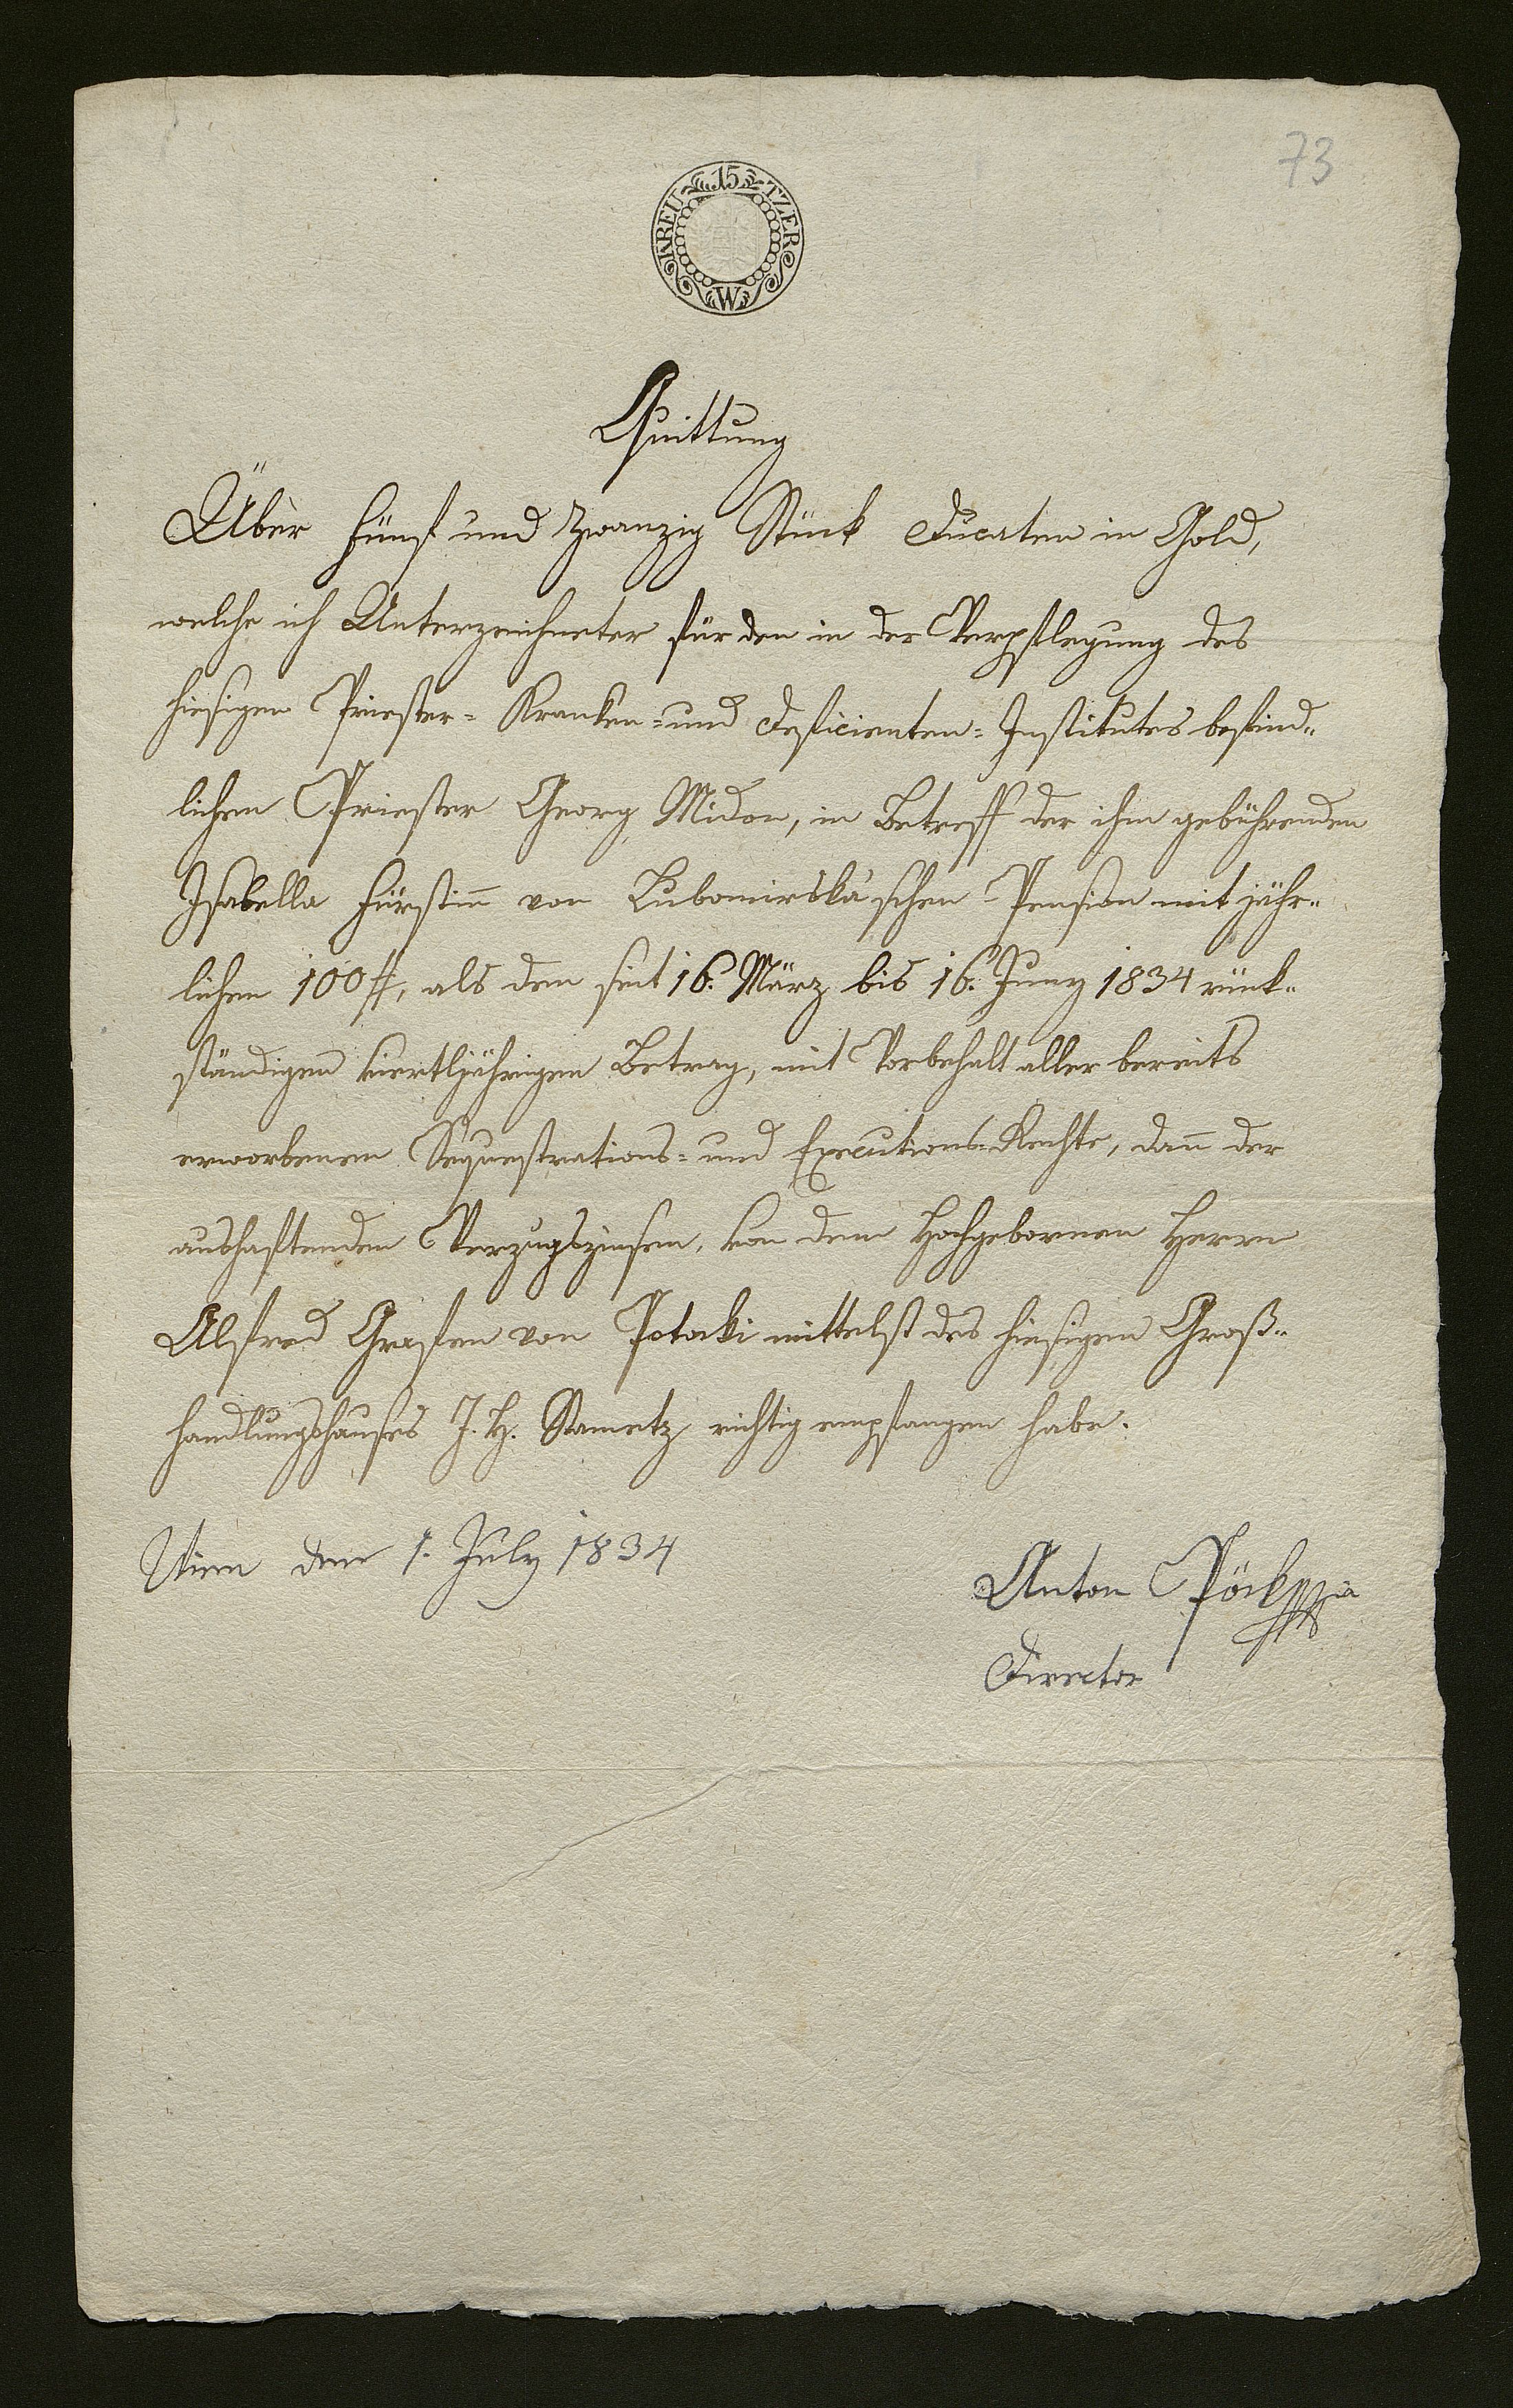 73
15 KREUTZER W
Quittung
Über fünf und zwanzig Stück Ducaten in Gold,
welche ich Unterzeichneter für den in der Verpflegung des
hiesigen Priester- Kranken- und Deficienten-Institutes befind-
lichen Priester Georg Midon, in Betreff der ihm gebührenden
Isabella Fürstin von Lubomirska'schen Pension mit jähr-
lichen 100 #, als den seit 16. März bis 16. Juny 1834 rück-
ständigen viertljährigen Betrag, mit Vorbehalt aller bereits
erworbenen Sequestrations- und Executions-Rechte, dann der
aushaftenden Verzugszinsen, von dem Hochgebornen Herrn
Alfred Grafen von Potocki mittelst des hiesigen Groß-
handlungshauses J. H. Stametz richtig empfangen habe.
Wien den 1. July 1834
Anton Pöck
Director